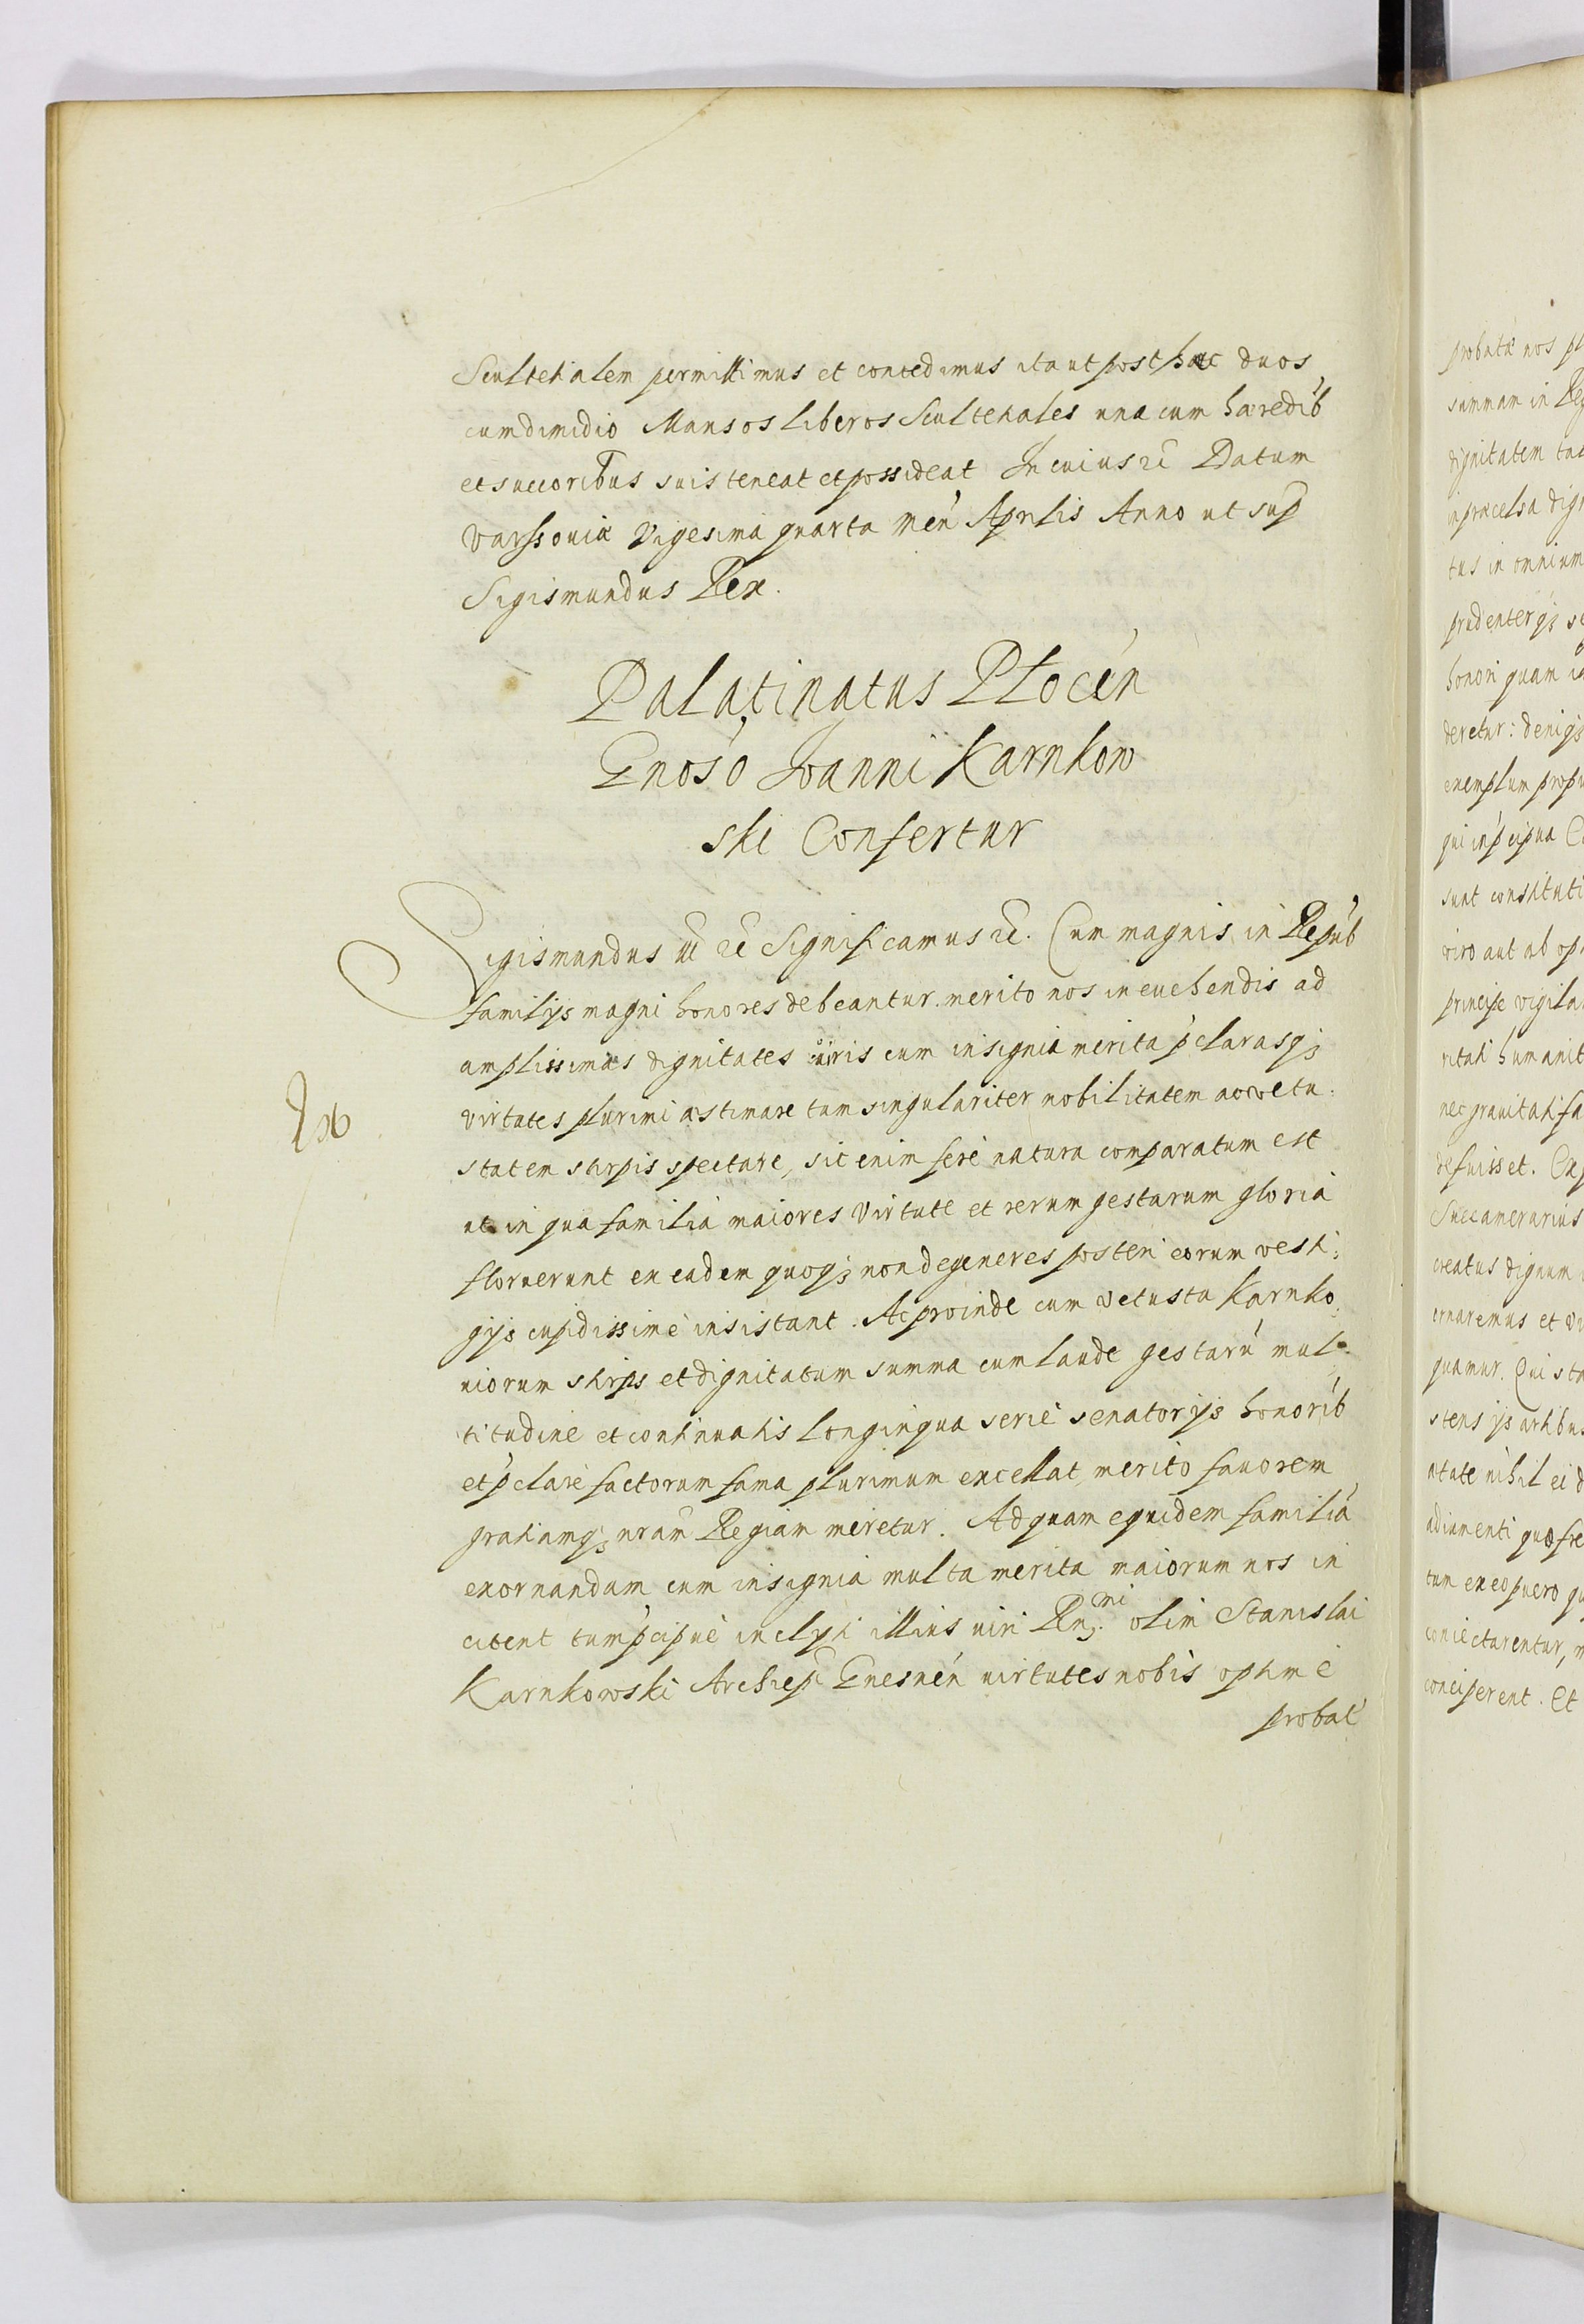 Scultetialem permittimus et concedimus ita ut posthac duos
cum dimidio Mansos liberos Scultetiales una cum hæredib
et succoribus suis teneat et possideat In cuius rē Datum
Varssouiæ Vigesima quarta Men Aprilis Anno ut sup
Sigismundus Rex.
Palatinatus Plocen
Gnoso Joanni Karnkow
ski Confertur
Sigismundus rē rē Significamus rē. Cum magnis in Repub
familijs magni honores debeantur merito nos in euehendis ad
amplissimas dignitates uiris cum insignia merita p'clarasq;
virtutes plurimi æstimare tum singulariter nobilitatem ac vetu,
statem stirpis spectare, sic enim fere natura comparatum est
ut in qua familia maiores virtute et rerum gestarum gloria
floruerunt ex eadem quoq; non degeneres posteri eorum vesti,
gijs cupidissime insistant. Ac proinde cum vetusta Karnko,
uiorum stirps et dignitatum summa cum laude gestarū mul
titudine et continuatis longinqua serie senatorijs honorib
et p'clare factorum fama plurimum excellat, merito fauorem
gratiamq; nram Regiam meretur. Ad quam equidem familiā
exornandam cum insignia multa merita maiorum nos in
citent tum p'cipue inclyti illius uiri Rn̄mi olim Stanislai
Karnkowski Archiepi Gnesnen uirtutes nobis optime
probat
probatæ nos
summam in
dignitatem
in præcelsa
tus in omnium
prudenterq;
honori quam
deretur: deniq;
exemplum
qui in p'cipua
sunt constituti
viro aut ab
principe
humanit
nec grauitati
defuisset.
Succamerarius
creatus dignum
ornaremus et
quamur. Qui
stens ijs artibus
ætate nihil ei
adiumenti
tum ex eo puero
coniectarentur,
conciperent. Et